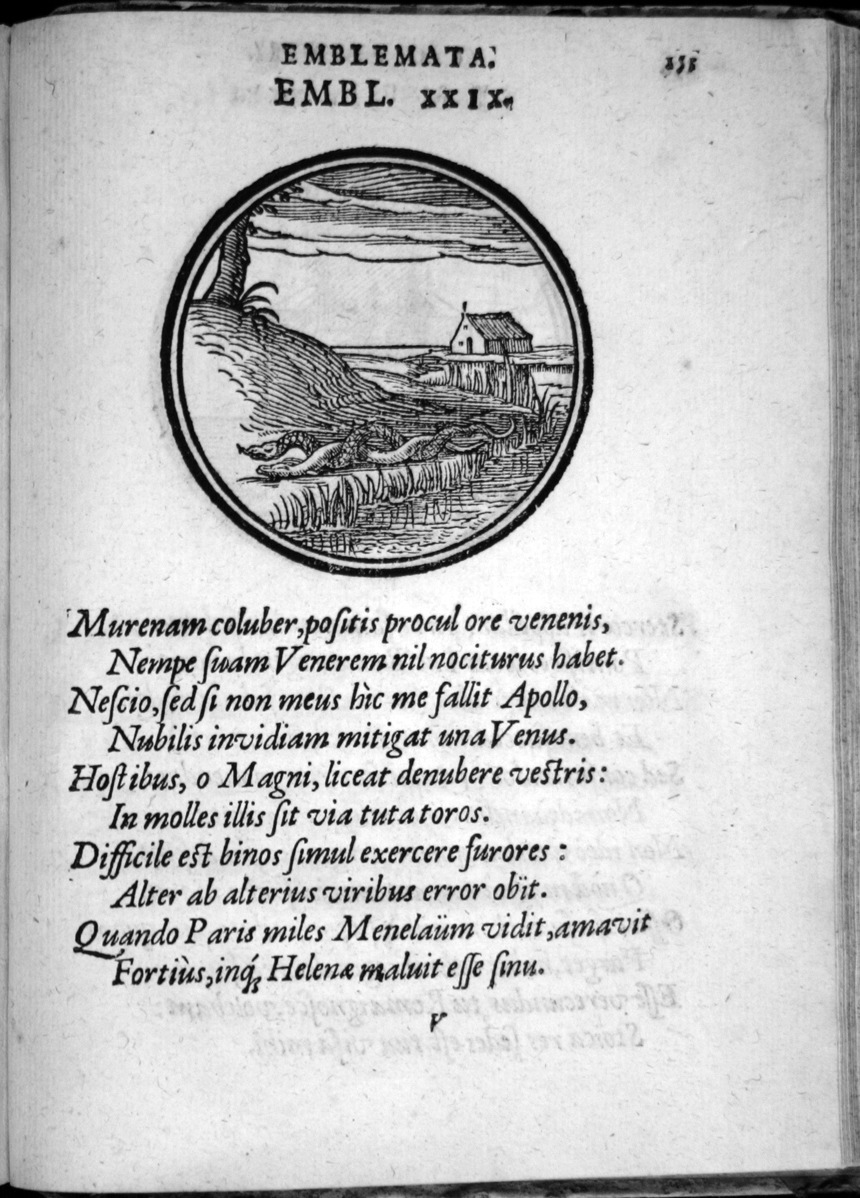 EMBLEMATA.
EMBL. XXIX.
Murenam coluber, poſitis procul ore venenis,
Nempe ſuam Venerem nil nociturus habet.
Neſcio, ſed ſi non meus hìc me fallit Apollo,
Nubilis invidiam mitigat una Venus.
Hoſtibus, o Magni, liceat denubere veſtris:
In molles illis ſit via tuta toros.
Difficile eſt binos ſimul exercere furores:
Alter ab alterius viribus error obït.
Quando Paris miles Menelaüm vidit, amavit
Fortiùs, inq́; Helenæ maluit eſſe ſinu.
V